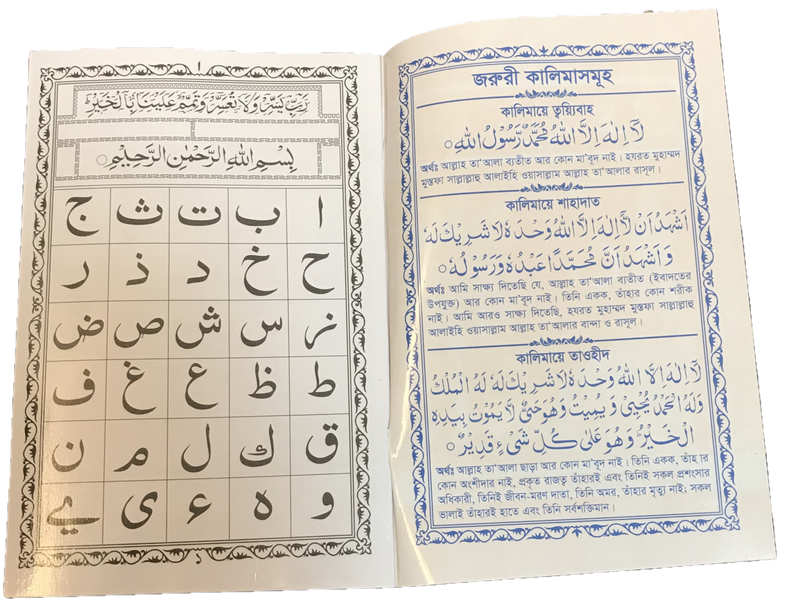 ١
رَبِّ يَسِّرْ وَلَا تُعَسِّرْ وَتَمِّمْ عَلَيْنَا بِالْخَيْرِ
بِسْمِ اللهِ الرَّحْمٰنِ الرَّحِيْمِ
ا ب ت ث ج
ح خ د ذ ر
ز س ش ص ض
ط ظ ع غ ف
ق ك ل م ن
و ه ء ى ے
জরুরী কালিমাসমূহ
কালিমায়ে ত্বয়্যিবাহ
لَآ اِلٰهَ اِلَّا اللهُ مُحَمَّدٌ رَّسُوْلُ اللهِ
অর্থঃ আল্লাহ তা'আলা ব্যতীত আর কোন মা'বুদ নাই। হযরত মুহাম্মদ
মুস্তফা সাল্লাল্লাহু আলাইহি ওয়াসাল্লাম আল্লাহ তা'আলার রাসূল।
কালিমায়ে শাহাদাত
اَشْهَدُ اَنْ لَّآ اِلٰهَ اِلَّا اللهُ وَحْدَهٗ لَا شَرِيْكَ لَهٗ
وَاَشْهَدُ اَنَّ مُحَمَّدًا عَبْدُهٗ وَرَسُوْلُهٗ
অর্থঃ আমি সাক্ষ্য দিতেছি যে, আল্লাহ তা'আলা ব্যতীত (ইবাদতের
উপযুক্ত) আর কোন মা'বুদ নাই। তিনি একক, তাঁহার কোন শরীক
নাই। আমি আরও সাক্ষ্য দিতেছি, হযরত মুহাম্মদ মুস্তফা সাল্লাল্লাহু
আলাইহি ওয়াসাল্লাম আল্লাহ তা'আলার বান্দা ও রাসূল।
কালিমায়ে তাওহীদ
لَآ اِلٰهَ اِلَّا اللهُ وَحْدَهٗ لَا شَرِيْكَ لَهٗ لَهُ الْمُلْكُ
وَلَهُ الْحَمْدُ يُحْيِىْ وَيُمِيْتُ وَهُوَ حَىٌّ لَّا يَمُوْتُ بِيَدِهِ
الْخَيْرُ وَهُوَ عَلٰى كُلِّ شَىْءٍ قَدِيْرٌ
অর্থঃ আল্লাহ তা'আলা ছাড়া আর কোন মা'বুদ নাই। তিনি একক, তাঁহার
কোন অংশীদার নাই, প্রকৃত রাজত্ব তাঁহারই এবং তিনিই সকল প্রশংসার
অধিকারী, তিনিই জীবন-মরণ দাতা, তিনি অমর, তাঁহার মৃত্যু নাই; সকল
ভালাই তাঁহারই হাতে এবং তিনি সর্বশক্তিমান।